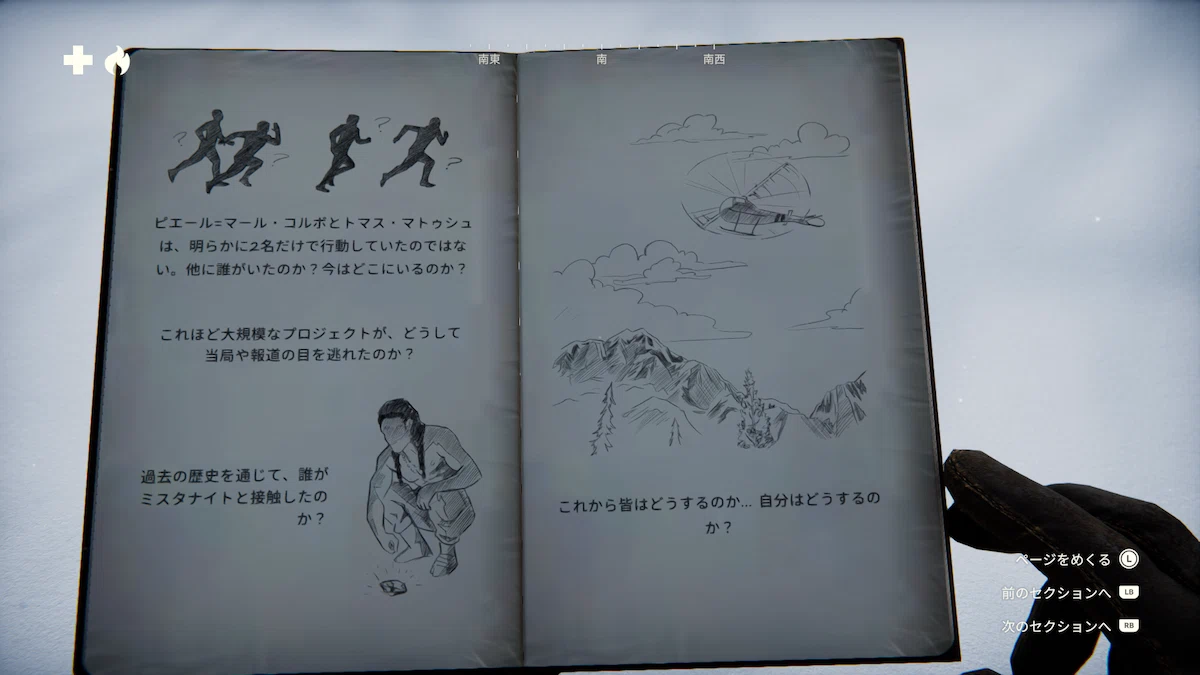 南東
南
南西
? ? ? ?
ピエール=マール・コルボとトマス・マトゥシュ
は、明らかに2名だけで行動していたのではな
い。他に誰がいたのか？今はどこにいるのか？
これほど大規模なプロジェクトが、どうして
当局や報道の目を逃れたのか？
過去の歴史を通じて、誰が
ミスタナイトと接触したの
か？
これから皆はどうするのか... 自分はどうするの
か？
ページをめくる L
前のセクションへ LB
次のセクションへ RB